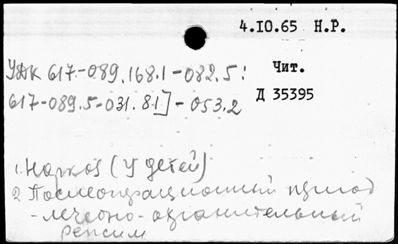 4.IO.65 Н.Р.
УДК 617-089.168.1-082.5:
Чит.
617-089.5-031.81]-053.2
Д 35395
1. Наркоз (у детей)
2. Послеоперационный период
- лечебно-охранительный
режим